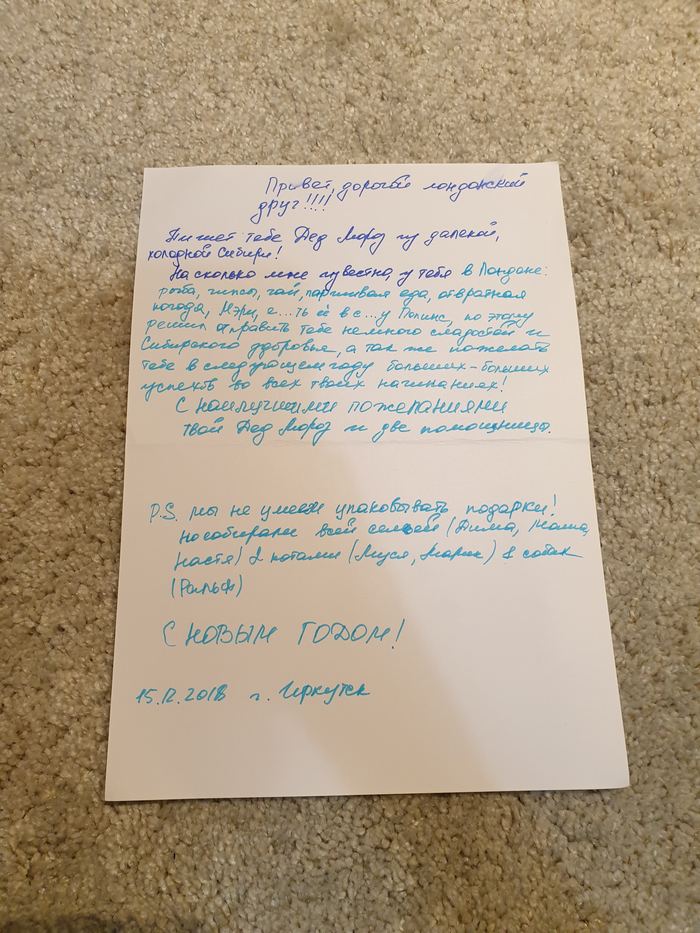 Привет, дорогой лондонский
друг!!!!
Пишет тебе Дед Мороз из далекой,
холодной Сибири!
На сколько мне известно, у тебя в Лондоне:
рыба, чипсы, чай, паршивая еда, отвратная
погода, Мэри, е...ть её в с...у Поппинс, по этому
решил отправить тебе немного сладостей и
Сибирского здоровья, а так же пожелать
тебе в следующем году больших-больших
успехов во всех твоих начинаниях!
С наилучшими пожеланиями
твой Дед Мороз и две помощницы.
P.S. мы не умеем упаковывать подарки!
Но собирали всей семьей (Дима, Маша,
Настя) 2 котами (Муся, Марик) 1 собак
(Ральф)
С НОВЫМ ГОДОМ!
15.12.2018 г. Иркутск